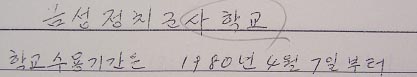 음성정치군사학교
학교수용기간은 1980년 4월 7일부터